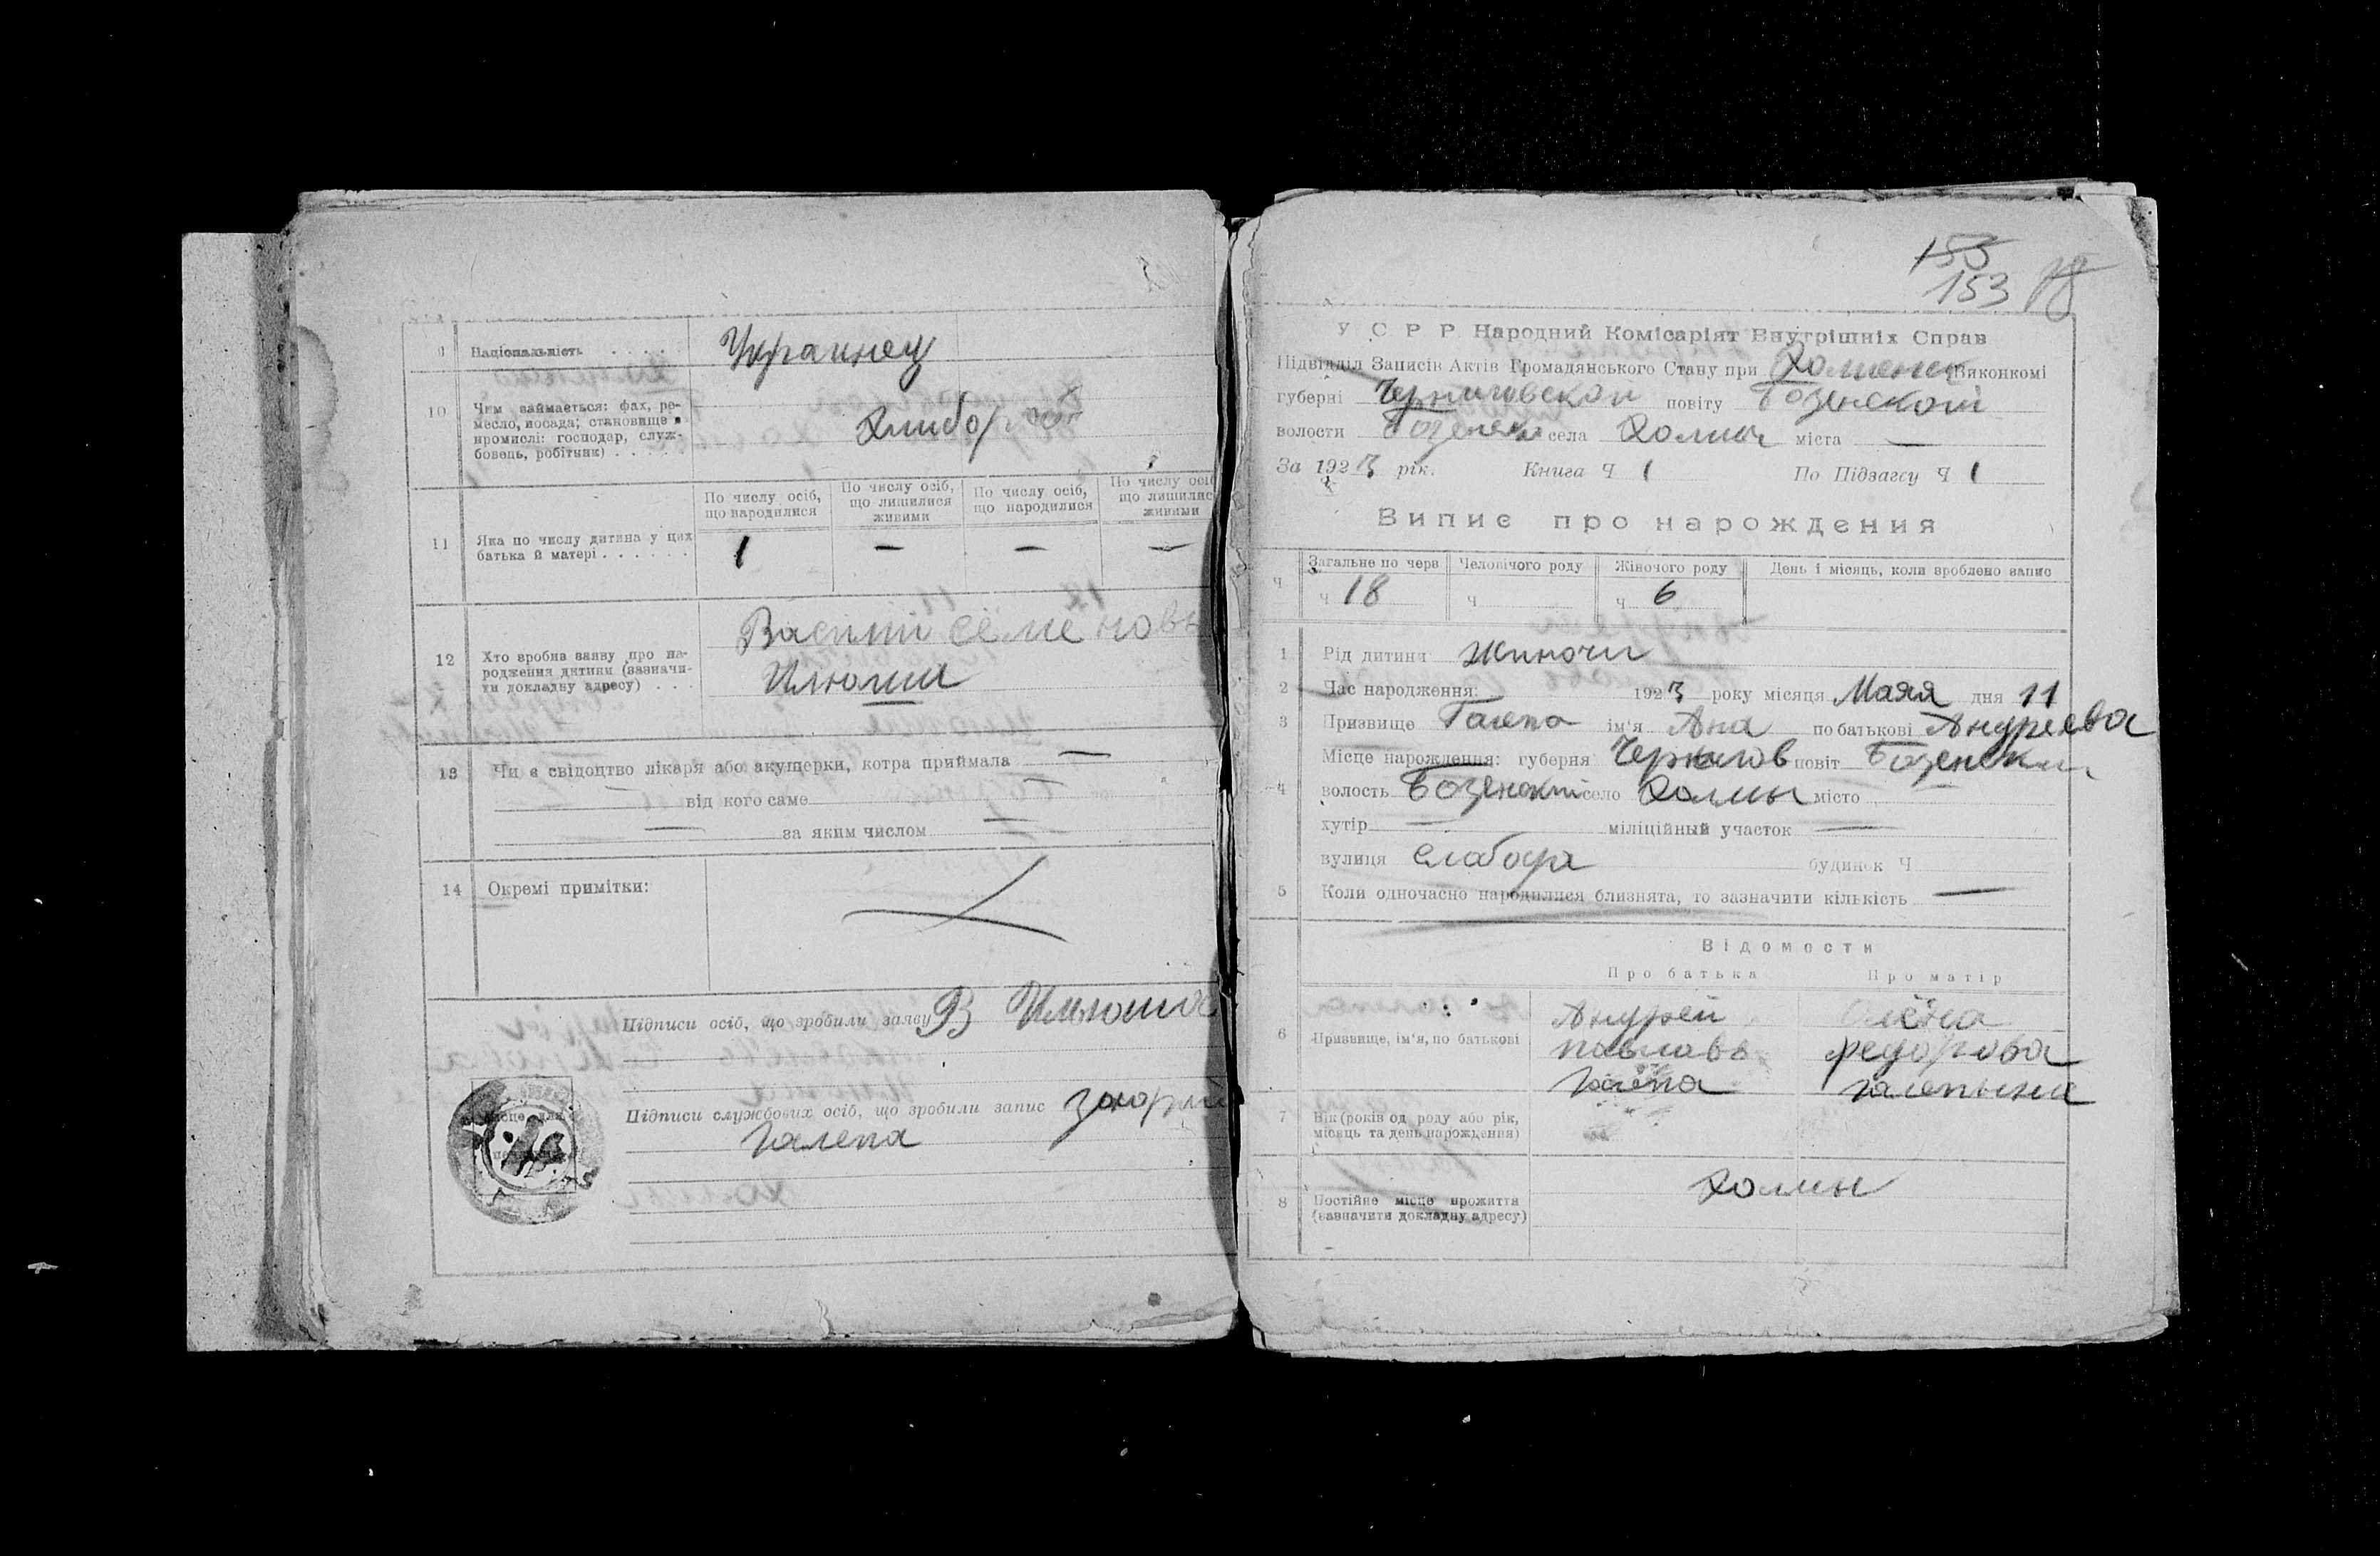 9 Національність . . . . Украинец
10 Чим займається: фах, ре-
месло, посада; становище в
промислі: господар, служ-
бовець, робітник) . . . . .
Хлибороб
По числу осіб, що народилися
По числу осіб, що лишилися живими
По числу осіб, що народилися
По числу осіб, що лишилис живими
11 Яка по числу дитина у цих
батька й матері . . . . . . 1 — — —
12 Хто зробив заяву про на-
родження дитини (зазначи-
ти докладну адресу) . . .
Васили Семеновъ
Илюши
13 Чи є свідоцтво лікаря або акушерки, котра приймала —
від кого саме
— за яким числом —
14 Окремі примітки:
Підписи осіб, що зробили заяву В Ильюша
Підписи службових осіб, що зробили запис
Галепа
Місце для
печатки
155
153
У С Р Р Народний Комісаріят Внутрішніх Справ
Підвідділ Записів Актів Громадянського Стану при Виконкомі
губерні Черниговской повіту
волости села Холмы міста —
За 1923 рік. Книга Ч 1 По Підзагсу Ч 1
Випис про нарождения
Ч Загальне по черв Человічого роду Жіночого роду День і місяць, коли зроблено запис
ч 18 ч ч 6
1 Рід дитини жиночи
2 Час народження: 1923 року місяця Маяя дня 11
3 Призвище Галепа ім'я Ана по батькові Андреева
4 Місце нарождення: губерня Чернигов повіт
волость село Холмы місто
хутір — міліційный участок —
вулиця слабода будинок Ч
5 Коли одночасно народилися близнята, то зазначити кількість —
Відомости
Про батька Про матір
6 Призвище, ім'я, по батькові
Андрей Олёна
павловъ федорова
Галепа галепына
7 Вік (років од роду або рік,
місяць та день нарождення)
8 Постійне місце прожиття
(зазначити докладну адресу)
Холмы